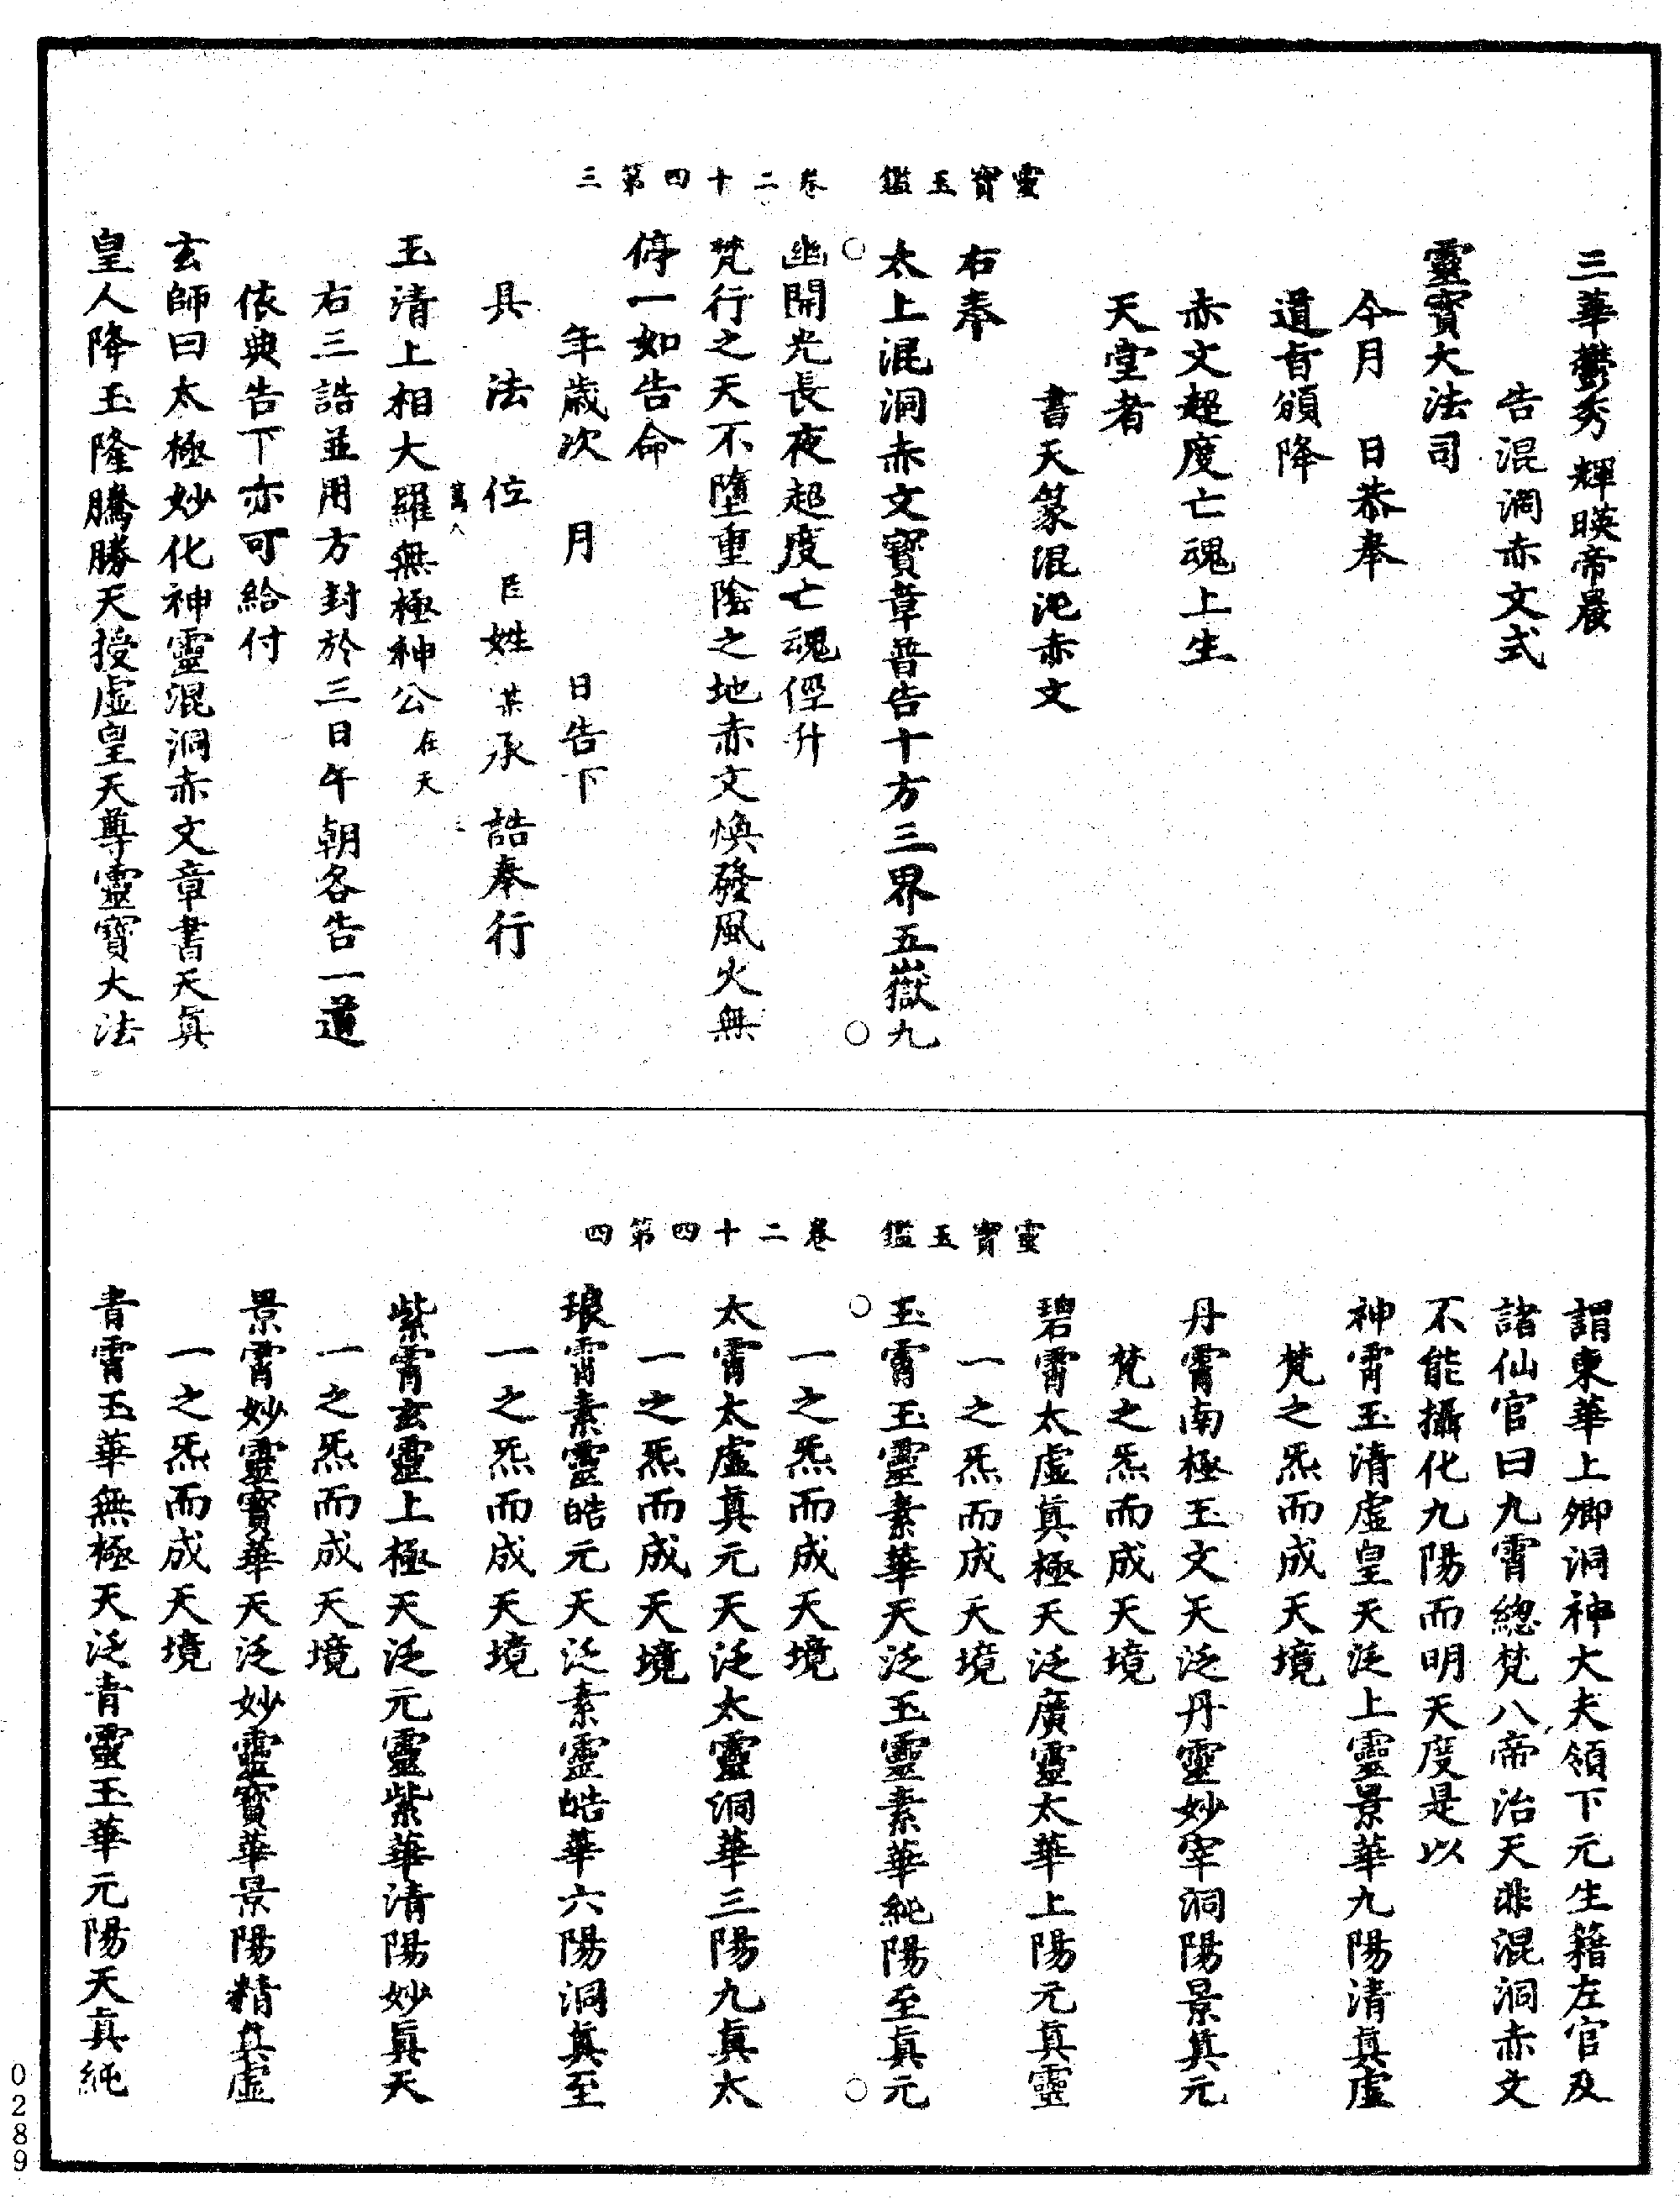 靈寶玉鑑　卷二十四第三
三華鬱秀輝暎帝晨
告混洞赤文式
靈寶大法司
今月　日恭奉
道旨頒降
赤文超度亡魂上生
天堂者
書天篆混沌赤文
右奉
太上混洞赤文寶章普告十方三界五嶽九
幽開光長夜超度亡魂俓升
梵行之天不墮重陰之地赤文煥發風火無
停一如告命
年歲次　月　日告下
具　法　位　臣姓某承誥奉行
玉清上相大羅無極神公在天
右三誥並用方封於三日午朝各告一道
依典告下亦可給付
玄師曰太極妙化神靈混洞赤文章書天眞
皇人降玉隆騰勝天授虛皇天尊靈寶大法
靈寶玉鑑　卷二十四第四
謂東華上卿洞神大夫領下元生籍左官及
諸仙官曰九霄總梵八帝治天非混洞赤文
不能攝化九陽而明天度是以
神霄玉清虛皇天泛上靈景華九陽清眞虛
梵之炁而成天境
丹霄南極玉文天泛丹靈妙宰洞陽景眞元
梵之炁而成天境
碧霄太虛眞極天泛廣靈太華上陽元眞靈
一之炁而成天境
玉霄玉靈素華天泛玉靈素華純陽至眞元
一之炁而成天境
太霄太虛眞元天泛太靈洞華三陽九眞太
一之炁而成天境
琅霄素靈皓元天泛素靈皓華六陽洞眞至
一之炁而成天境
紫霄玄靈上極天泛元靈紫華清陽妙眞天
一之炁而成天境
景霄妙靈寶華天泛妙靈寶華景陽精眞虛
一之炁而成天境
青霄玉華無極天泛青靈玉華元陽天眞純
0289